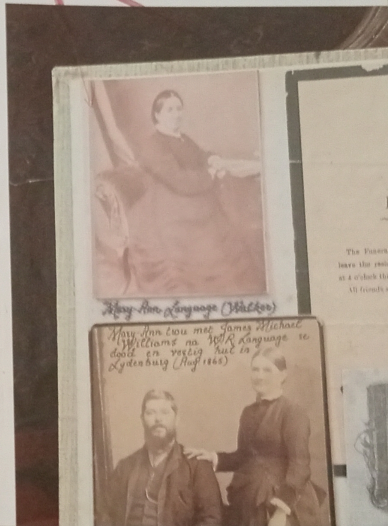 Mary Ann Language (Walker)
Mary Ann trou met James Michael
Williams na W.R Language se
dood en vestig hul in
Lydenburg (Aug 1865)
The Funera
leave the resi
at 4 o'clock th
All friends